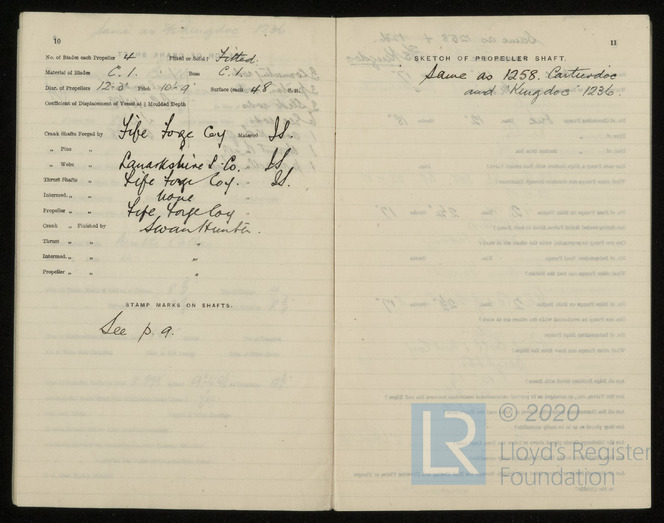 10
No. of Blades each Propeller 4 Fixed or Solid? Fitted.
Material of Blades C.I. Boss C.I.
Diar. of Propellers 12'-3" Pitch 10'-9" Surface (each 48 S. ft.
Coefficient of Displacement of Vessel at ¾ Moulded Depth
Crank Shafts Forged by Fife Forge Coy Material IS.
„ Pins „
„ Webs „ Lanarkshire S. Co. IS
Thrust Shafts „ Fife Forge Coy. „ IS.
Intermed. „ „ none „
Propeller „ „ Fife Forge Coy „
Crank „ Finished by Swan Hunter.
Thrust „ „ „
Intermed. „ „ „
Propeller „ „ „
STAMP MARKS ON SHAFTS.
See p. 9.
11
SKETCH OF PROPELLER SHAFT.
Same as 1258. Carterdoc
and "Kingdoc" 1236.
LR © 2020
Lloyd's Register
Foundation